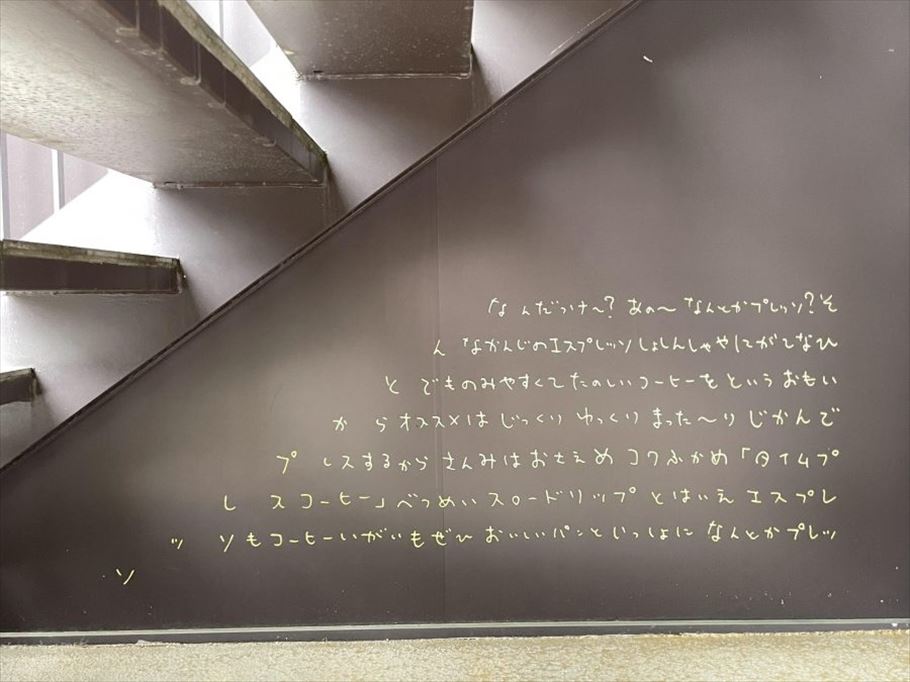 なんだっけ〜? あの〜 なんとかプレッソ?そ
んなかんじのエスプレッソしょしんしゃやにがてなひ
とでものみやすくてたのしいコーヒーをというおもい
からオススメは じっくり ゆっくり まった〜り じかんで
プレスするから さんみはおさえめ コクふかめ「タイムプ
レスコーヒー」べつめい スロードリップ とはいえ エスプレ
ッソもコーヒーいがいもぜひ おいしいパンといっしょに なんとかプレッ
ソ